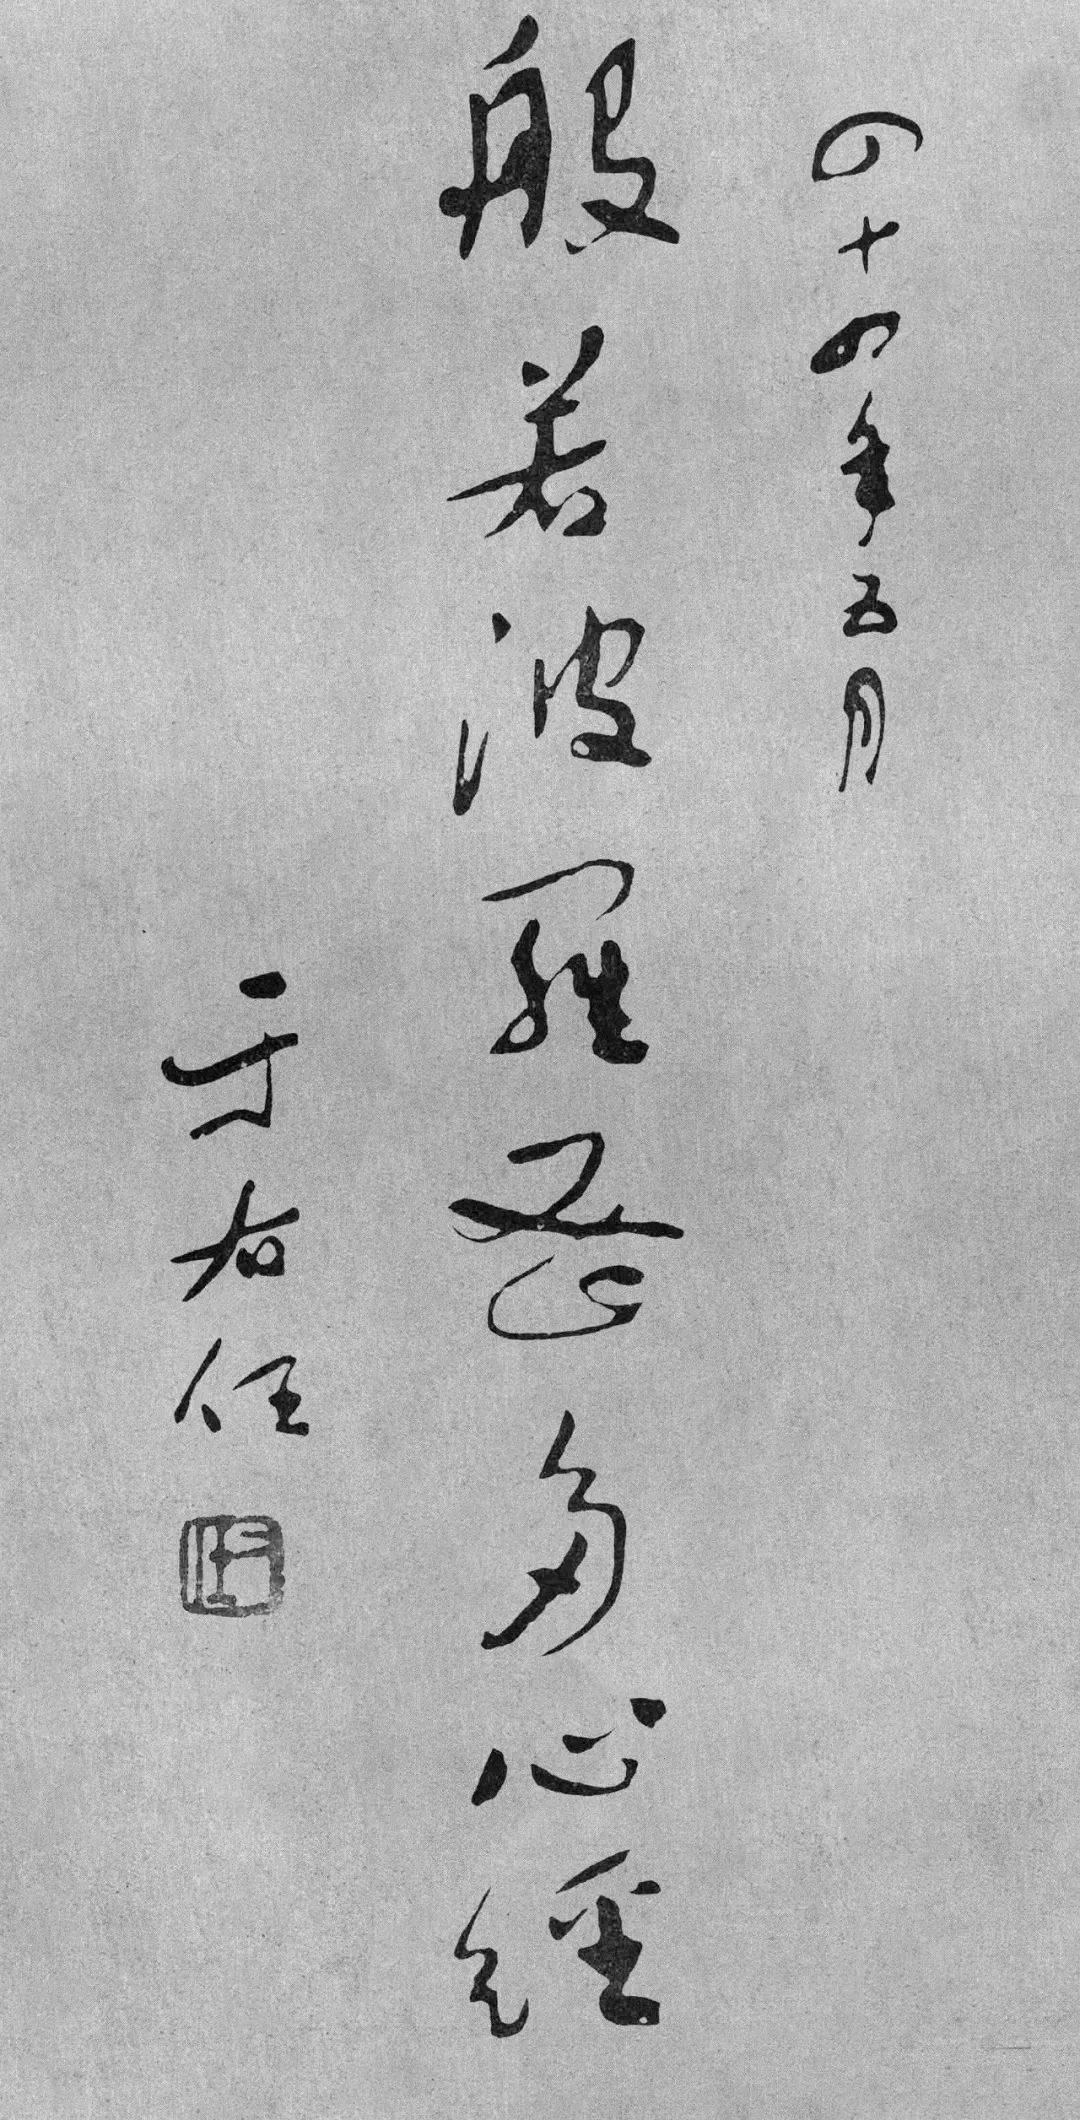 四十四年五月
般若波羅蜜多心經
于右任